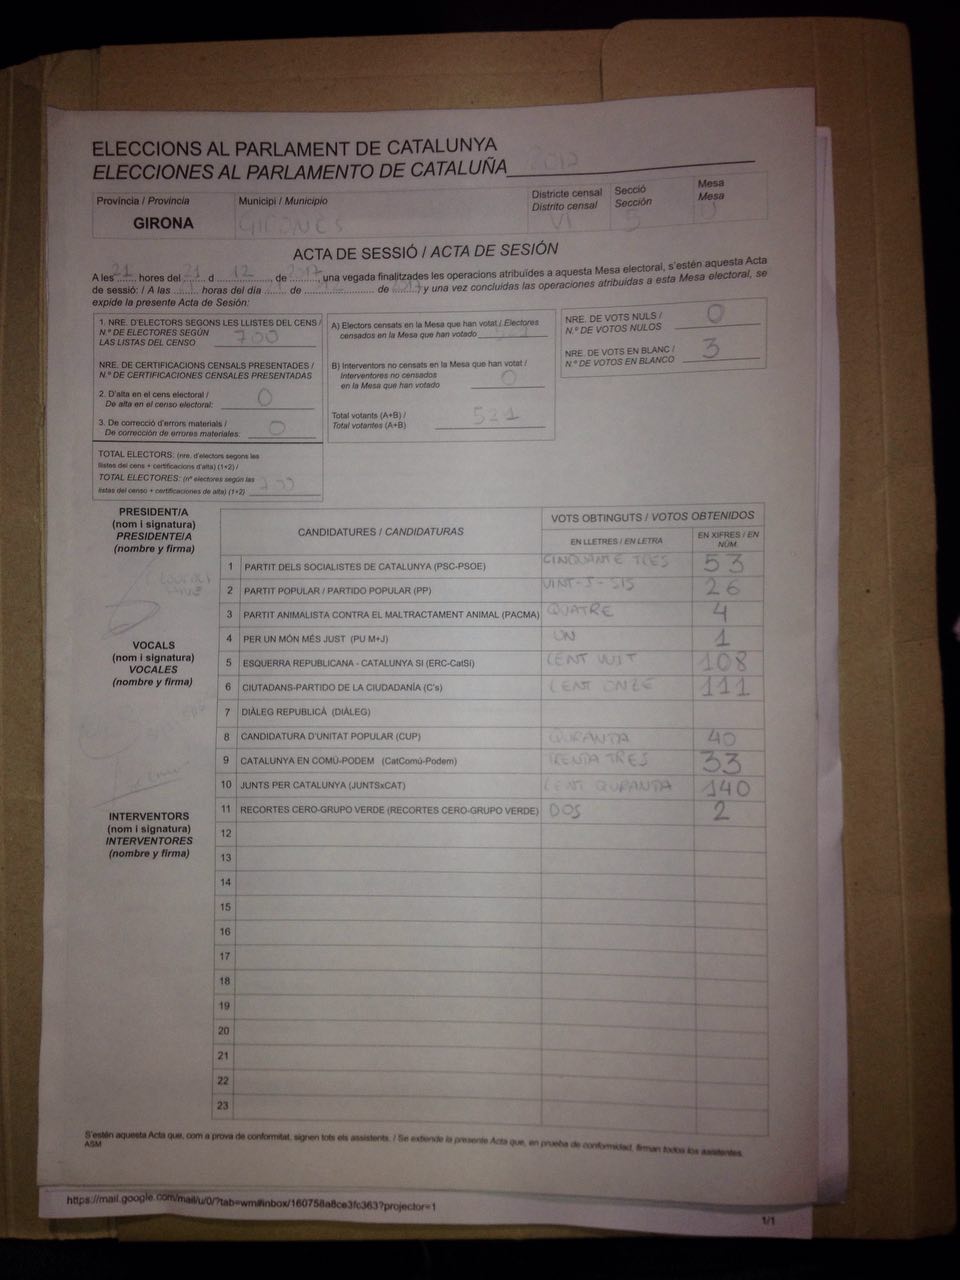 ELECCIONS AL PARLAMENT DE CATALUNYA
ELECCIONES AL PARLAMENTO DE CATALUÑA 2017
Província / Provincia
GIRONA
Municipi / Municipio
GIRONÈS
Districte censal
Distrito censal
VI
Secció
Sección
Mesa
Mesa
U
ACTA DE SESSIÓ / ACTA DE SESIÓN
A les 21 hores del 21 d 12 de 2017, una vegada finalitzades les operacions atribuïdes a aquesta Mesa electoral, s'estén aquesta Acta
de sessió: / A las ........ horas del día ...... de ............ de 2017, y una vez concluidas las operaciones atribuidas a esta Mesa electoral, se
expide la presente Acta de Sesión:
1. NRE. D'ELECTORS SEGONS LES LLISTES DEL CENS /
N.º DE ELECTORES SEGÚN
LAS LISTAS DEL CENSO 700
NRE. DE CERTIFICACIONS CENSALS PRESENTADES /
N.º DE CERTIFICACIONES CENSALES PRESENTADAS
2. D'alta en el cens electoral /
De alta en el censo electoral: 0
3. De correcció d'errors materials /
De corrección de errores materiales: 0
TOTAL ELECTORS: (nre. d'electors segons les
llistes del cens + certificacions d'alta) (1+2) /
TOTAL ELECTORES: (nº electores según las
listas del censo + certificaciones de alta) (1+2) 700
A) Electors censats en la Mesa que han votat / Electores
censados en la Mesa que han votado 521
B) Interventors no censats en la Mesa que han votat /
Interventores no censados
en la Mesa que han votado 0
Total votants (A+B) /
Total votantes (A+B) 521
NRE. DE VOTS NULS /
N.º DE VOTOS NULOS 0
NRE. DE VOTS EN BLANC /
N.º DE VOTOS EN BLANCO 3
PRESIDENT/A
(nom i signatura)
PRESIDENTE/A
(nombre y firma)
VOCALS
(nom i signatura)
VOCALES
(nombre y firma)
INTERVENTORS
(nom i signatura)
INTERVENTORES
(nombre y firma)
CANDIDATURES / CANDIDATURAS
VOTS OBTINGUTS / VOTOS OBTENIDOS
EN LLETRES / EN LETRA
EN XIFRES / EN NÚM.
1 PARTIT DELS SOCIALISTES DE CATALUNYA (PSC-PSOE) CINQUANTE TRES 53
2 PARTIT POPULAR / PARTIDO POPULAR (PP) VINT-I-SIS 26
3 PARTIT ANIMALISTA CONTRA EL MALTRACTAMENT ANIMAL (PACMA) QUATRE 4
4 PER UN MÓN MÉS JUST (PU M+J) UN 1
5 ESQUERRA REPUBLICANA - CATALUNYA SI (ERC-CatSí) CENT VUIT 108
6 CIUTADANS-PARTIDO DE LA CIUDADANÍA (C's) CENT ONZE 111
7 DIÀLEG REPUBLICÀ (DIÀLEG)
8 CANDIDATURA D'UNITAT POPULAR (CUP) QURANTA 40
9 CATALUNYA EN COMÚ-PODEM (CatComú-Podem) TRENTA TRES 33
10 JUNTS PER CATALUNYA (JUNTSxCAT) CENT QURANTA 140
11 RECORTES CERO-GRUPO VERDE (RECORTES CERO-GRUPO VERDE) DOS 2
12
13
14
15
16
17
18
19
20
21
22
23
S'estén aquesta Acta que, com a prova de conformitat, signen tots els assistents. / Se extiende la presente Acta que, en prueba de conformidad, firman todos los asistentes.
ASM
https://mail.google.com/mail/u/0/?tab=wm#inbox/160758a8ce3fc363?projector=1
1/1